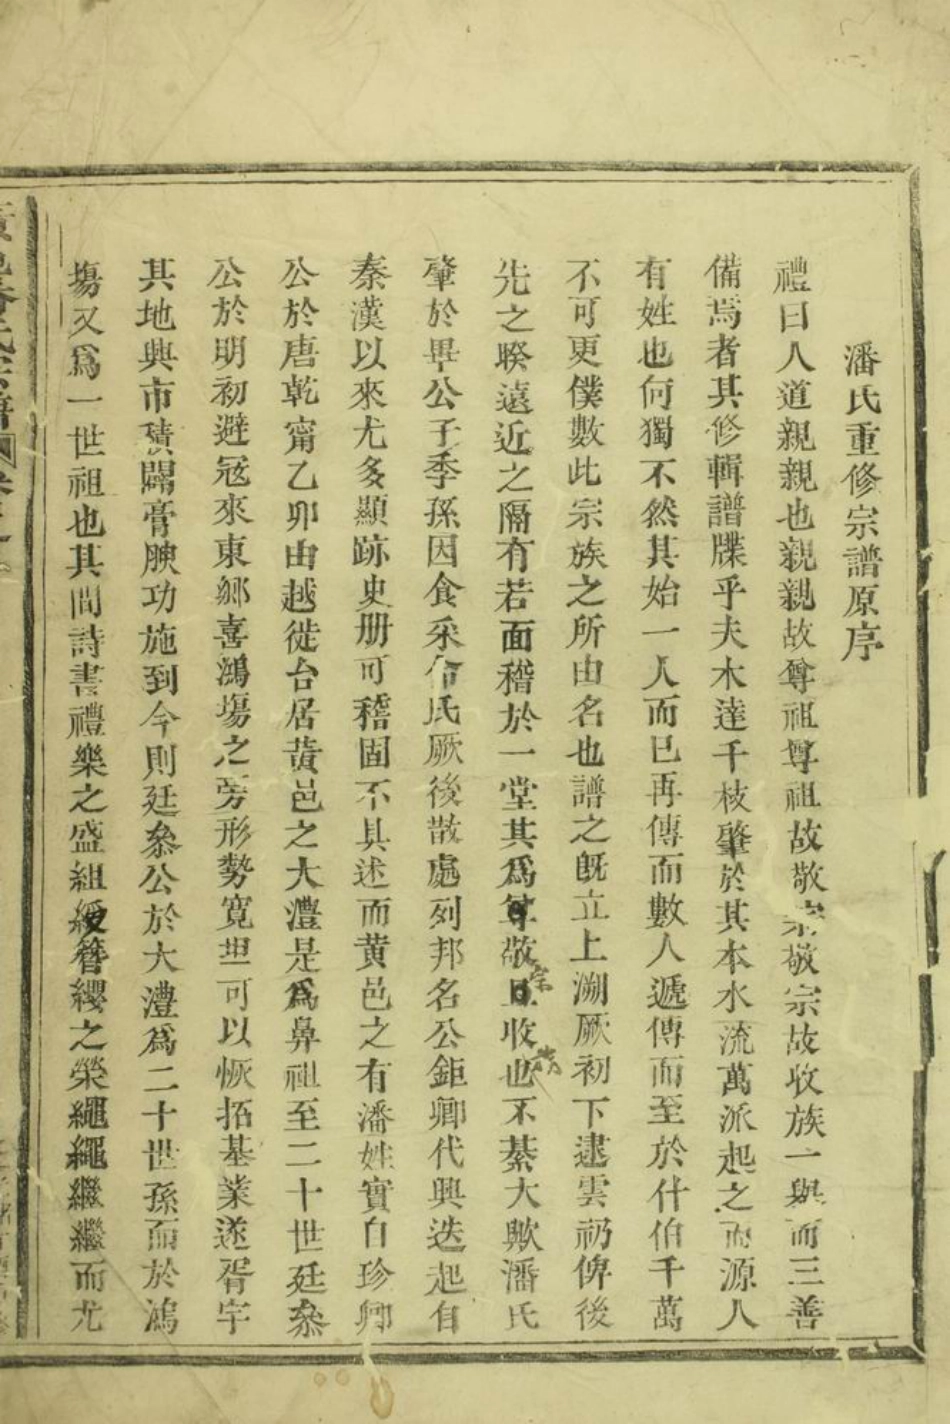 潘氏重修宗譜原序
禮曰人道親親也親親故尊祖尊祖故敬宗敬宗故收族一舉而三善
備焉者其修輯譜牒乎夫木達千枝肇於其本水流萬派起之而源人
有姓也何獨不然其始一人而已再傳而數人遞傳而至於什伯千萬
不可更僕數此宗族之所由名也譜之旣立上溯厥初下逮雲礽俾後
先之暌遠近之隔有若面稽於一堂其爲尊敬且收也不綦大歟潘氏
宗
肇於畢公子季孫因食采命氏厥後散處列邦名公鉅卿代興迭起自
秦漢以來尤多顯跡史册可稽固不具述而黃邑之有潘姓實自珍卿
公於唐乾甯乙卯由越徙台居黃邑之大澧是爲鼻祖至二十世廷叅
公於明初避冦來東鄉喜鴻塲之旁形勢寬坦可以恢拓基業遂胥宇
其地與市闢膏腴功施到今則廷叅公於大澧爲二十世孫而於鴻
塲又爲一世祖也其間詩書禮樂之盛組綬簪纓之榮繩繩繼繼而尤